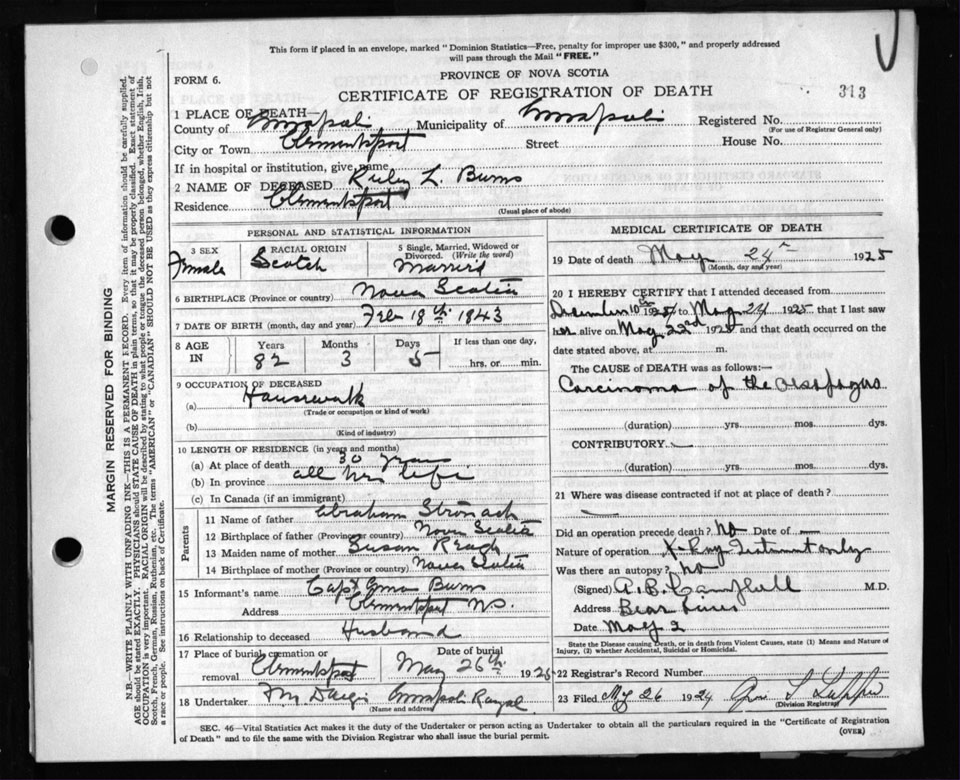 This form if placed in an envelope, marked "Dominion Statistics—Free, penalty for improper use $300," and properly addressed
will pass through the Mail "FREE."
PROVINCE OF NOVA SCOTIA
FORM 6.
CERTIFICATE OF REGISTRATION OF DEATH
313
1 PLACE OF DEATH—
County of Annapolis Municipality of Annapolis Registered No.
(For use of Registrar General only)
City or Town Clementsport Street House No.
If in hospital or institution, give name
2 NAME OF DECEASED L. Burns
Residence Clementsport
(Usual place of abode)
PERSONAL AND STATISTICAL INFORMATION
3 SEX RACIAL ORIGIN 5 Single, Married, Widowed or Divorced. (Write the word)
Female Scotch Married
6 BIRTHPLACE (Province or country) Nova Scotia
7 DATE OF BIRTH (month, day and year) Feb 18th 1843
8 AGE IN Years Months Days If less than one day,
82 3 5 hrs. or min.
9 OCCUPATION OF DECEASED
(a) Housework
(Trade or occupation or kind of work)
(b)
(Kind of industry)
10 LENGTH OF RESIDENCE (in years and months)
(a) At place of death 30 years
(b) In province all her life
(c) In Canada (if an immigrant)
Parents
11 Name of father Abraham Stronach
12 Birthplace of father (Province or country) Nova Scotia
13 Maiden name of mother Susan Reagh
14 Birthplace of mother (Province or country) Nova Scotia
15 Informant's name Capt Burns
Address Clementsport N.S.
16 Relationship to deceased Husband
17 Place of burial, cremation or removal Date of burial
Clementsport May 26th 1925
18 Undertaker Annapolis Royal
(Name and address)
MEDICAL CERTIFICATE OF DEATH
19 Date of death May 24th 1925
(Month, day and year)
20 I HEREBY CERTIFY that I attended deceased from
December 10th to May 24 1925 that I last saw
her alive on May 22nd 1925 and that death occurred on the
date stated above, at m.
The CAUSE OF DEATH was as follows:—
Carcinoma of the Oesofagus
(duration) yrs. mos. dys.
CONTRIBUTORY
(duration) yrs. mos. dys.
21 Where was disease contracted if not at place of death?
Did an operation precede death? No Date of —
Nature of operation X-Ray Treatment only
Was there an autopsy? No
(Signed) A. B. Campbell M.D.
Address Bear River
Date May 2
State the Disease causing Death, or in death from Violent Causes, state (1) Means and Nature of
Injury, (2) whether Accidental, Suicidal or Homicidal.
22 Registrar's Record Number
23 Filed My 26 1924
(Division Registrar)
SEC. 46—Vital Statistics Act makes it the duty of the Undertaker or person acting as Undertaker to obtain all the particulars required in the "Certificate of Registration
of Death" and to file the same with the Division Registrar who shall issue the burial permit.
(OVER)
MARGIN RESERVED FOR BINDING
N.B.—WRITE PLAINLY WITH UNFADING INK—THIS IS A PERMANENT RECORD. Every item of information should be carefully supplied.
AGE should be stated EXACTLY. PHYSICIANS should STATE CAUSE OF DEATH in plain terms, so that it may be properly classified. Exact statement of
OCCUPATION is very important. RACIAL ORIGIN will be described by stating to what people or tongue the deceased person belonged, whether English, Irish,
Scotch, French, German, Russian, Ruthenian, etc. The terms "AMERICAN" or "CANADIAN" SHOULD NOT BE USED as they express citizenship but not
a race or people. See instructions on back of Certificate.